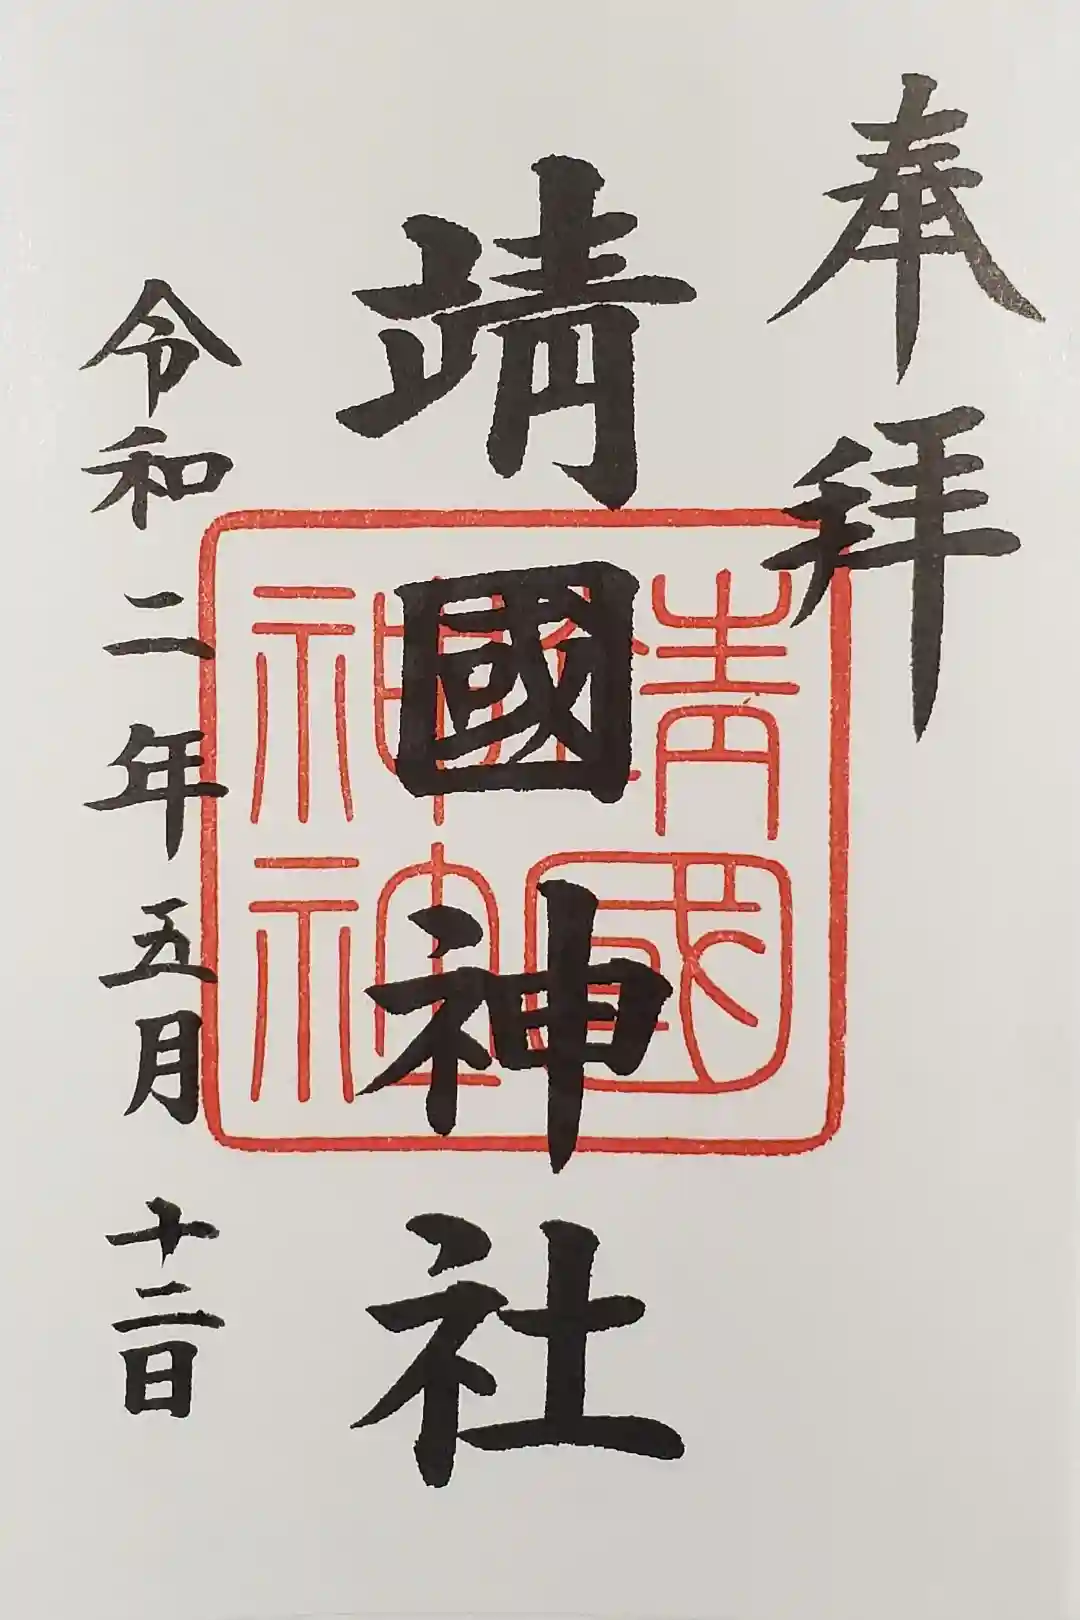 奉拝
靖國神社
靖國神社
令和二年五月十二日